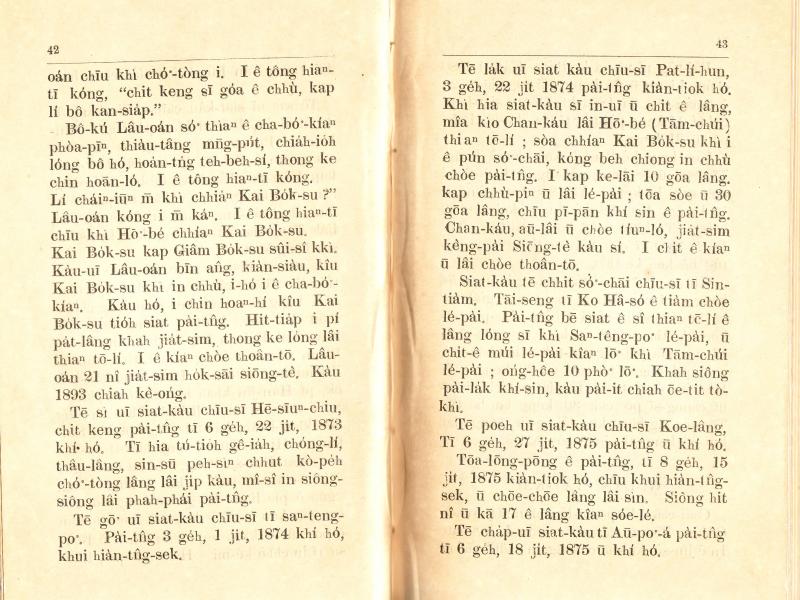 42
oán chīu khì chó͘-tòng i. I ê tông hiaⁿ-
tī kóng, “chit keng sī góa ê chhù, kap
lí bô kan-sia̍p.”
Bô-kú Lâu-oán só͘ thìaⁿ ê cha-bó͘-kíaⁿ
phòa-pīⁿ, thiàu-tâng mn̄g-pu̍t, chia̍h-io̍h
lóng bô hó, hoán-tńg teh-beh-sí, thong ke
chin hoān-ló. I ê tông hiaⁿ-tī kóng.
Lí cháiⁿ-iūⁿ m̄ khì chhiáⁿ Kai Bo̍k-su ?”
Lâu-oán kóng i m̄ káⁿ. I ê tông hiaⁿ-tī
chīu khì Hō͘-bé chhíaⁿ Kai Bo̍k-su.
Kai Bo̍k-su kap Giâm Bo̍k-su sûi-sî kkì.
Kàu-uī Lâu-oán bīn âng, kiàn-siàu, kîu
Kai Bo̍k-su khì in chhù, i-hó i ê cha-bó͘-
kíaⁿ. Kàu hó, i chin hoaⁿ-hí kîu Kai
Bo̍k-su tio̍h siat pài-tn̂g. Hit-tia̍p i pí
pa̍t-lâng khah jia̍t-sim, thong ke lóng lâi
thiaⁿ tō-lí. I ê kíaⁿ chòe thoân-tō. Lâu-
oán 21 nî jia̍t-sim ho̍k-sāi siōng-tè. Kàu
1893 chiah kè-óng.
Tē sì uī siat-kàu chīu-sī Hē-sīuⁿ-chiu,
chit keng pài-tn̂g tī 6 ge̍h, 22 ji̍t, 1873
khí hó. Tī hia tú-tio̍h gê-ia̍h, chóng-lí,
thâu-lâng, sin-sū peh-sìⁿ chhut kò-pe̍h
chó͘-tòng lâng lâi ji̍p kàu, mî-sî in siông-
siông lâi phah-phái pài-tn̂g.
Tē gō͘ uī siat-kàu chīu-sī tī saⁿ-teng-
po͘. Pài-tn̂g 3 ge̍h, 1 ji̍t, 1874 khí hó,
khui hiàn-tn̂g-sek.
43
Tē la̍k uī siat kàu chīu-sī Pat-lí-hun,
3 ge̍h, 22 ji̍t 1874 pài-tn̂g kiàn-tiok hó.
Khì hia siat-kàu sī in-uī ū chit ê lâng,
mîa kìo Chan-káu lâi Hō͘-bé (Tām-chúi)
thiaⁿ tō-lí ; sòa chhíaⁿ Kai Bo̍k-su khì i
ê pún só͘-chāi, kóng beh chiong in chhù
chòe pài-tn̂g. I kap ke-lāi 10 gōa lâng.
kap chhù-piⁿ ū lâi lé-pài ; tōa sòe ū 30
gōa lâng, chīu pī-pān khí sin ê pài-tn̂g.
Chan-káu, aū-lâi ū chòe tíuⁿ-ló, jia̍t-sim
kèng-pài Siōng-tè kàu sí. I chit ê kíaⁿ
ū lâi chòe thoân-tō.
Siat-kàu tē chhit só͘-chāi chīu-sī tī Sin-
tiàm. Tāi-seng tī Ko Hâ-só ê tiàm chòe
lé-pài. Pài-tn̂g bē siat ê sî thiaⁿ tō-lí ê
lâng lóng sī khì Saⁿ-têng-po͘ lé-pài, ū
chit-ê múi lé-pài kîaⁿ lō͘ khì Tām-chúi
lé-pài ; ong-hôe 10 phò͘ lō͘. Khah siông
pài-la̍k khí-sin, kàu pài-it chiah ōe-tit tò-
khì.
Tē poeh uī siat-kàu chīu-sī Koe-lâng,
Tī 6 ge̍h, 27 ji̍t, 1875 pài-tn̂g ū khí hó.
Tōa-lông-pōng ê pài-tn̂g, tī 8 ge̍h, 15
ji̍t, 1875 kiàn-tiok hó, chīu khui hiàn-tn̂g-
sek, ū chōe-chōe lâng lâi sìn. Siông hit
nî ū kā 17 ê lâng kîaⁿ sóe-lé.
Tē cha̍p-uī siat-kàu tī Aū-po͘-á pài-tn̂g
tī 6 ge̍h, 18 ji̍t, 1875 ū khí hó.